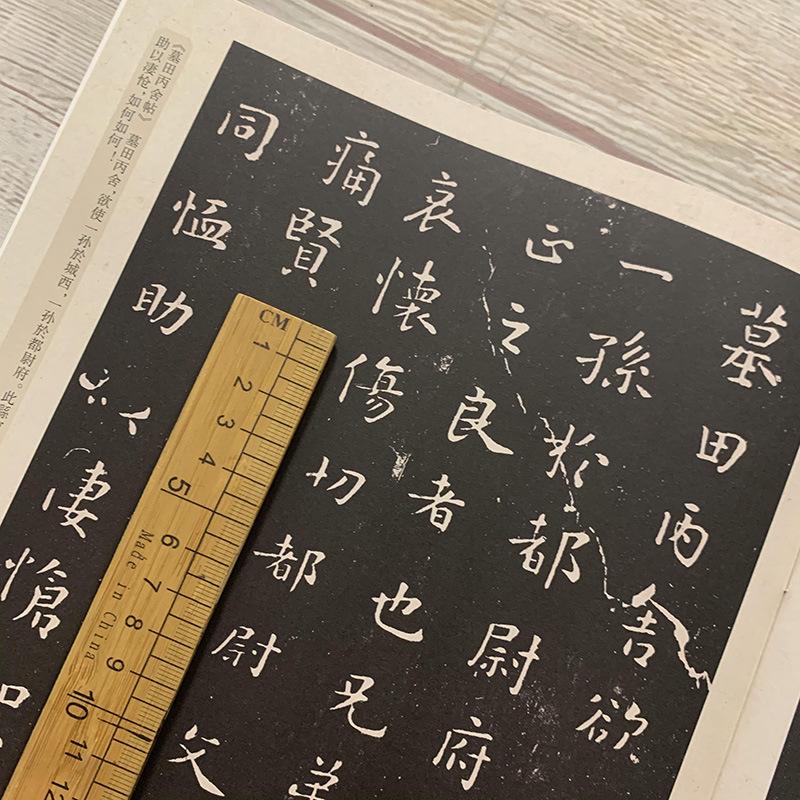 墓田丙舍欲
一孫於都尉府
正之良者也兄弟
哀懷傷切都尉父
痛賢
同恤助以凄愴如
《墓田丙舍帖》 墓田丙舍，欲使一孙於城西，一孙於都尉府。此繇
助以凄怆，如何如何！
CM
1
2
3
4
5
6
7
8
9
10
11
12
Made in China